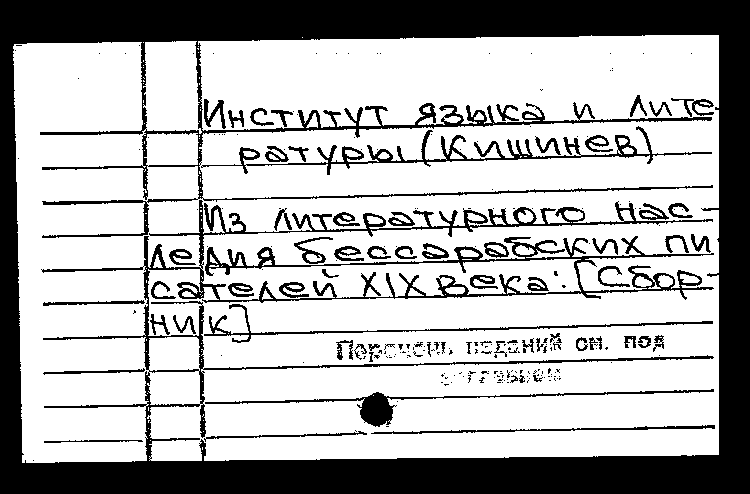 Институт языка и лите-
ратуры (Кишинев)
Из литературного нас-
ледия бессарабских пи-
сателей XIX века: [Сбор-
ник]
Перечень изданий см. под
заглавием